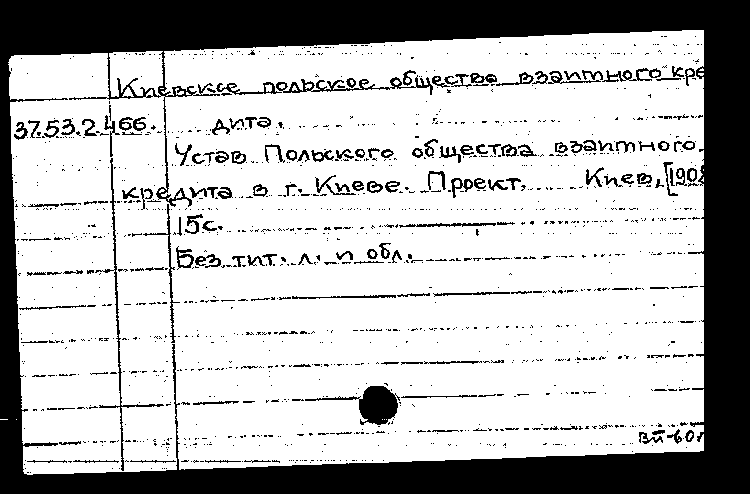 Киевское польское общество взаимного кре
37.53.2.466. дита.
Устав Польского общества взаимного
кредита в г. Киеве. Проект. Киев, [1908
15с.
Без тит. л. и обл.
ВЙ-60г